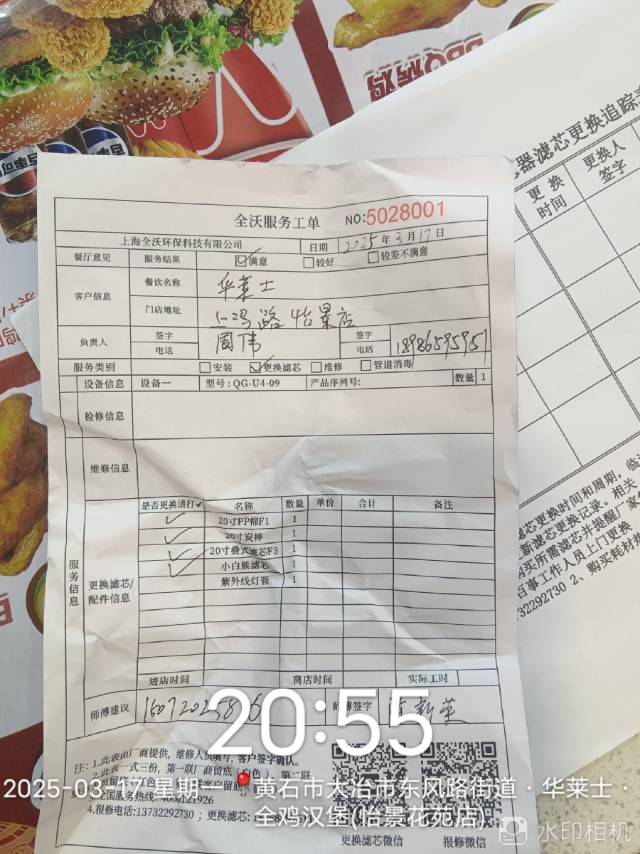 BBQ烤鸡
器滤芯更换追踪
更换时间
更换人签字
全沃服务工单 NO:5028001
上海全沃环保科技有限公司 日期 2025年3月17日
餐厅意见 服务结果 ☑满意 □较好 □较差不满意
客户信息 餐饮名称 华莱士
门店地址 怡景店
负责人 签字 周伟 签字
电话 电话 18986595957
服务类别 □安装 ☑更换滤芯 □维修 □管道消毒
设备信息 设备一 型号:QG-U4-09 产品序列号: 数量 1
检修信息
维修信息
服务信息
更换滤芯/配件信息
是否更换请打✓ 名称 数量 单价 合计 备注
✓ 20寸PP棉F1 1
✓ 20寸炭棒 1
✓ 20寸叠式滤芯F3 1
✓ 小白熊滤芯 1
紫外线灯管 1
进店时间 离店时间 实际工时
师傅建议 师傅签字
20:55
注:1.此表由厂商提供,维修人员填写,客户签字确认。
2.此表一式三份,第一联厂商留底
3.全国服务热线:4000121926
4.报修电话:13732292730; 更换滤芯:
更换滤芯微信 报修微信
2025-03-17 星期一 黄石市大冶市东风路街道·华莱士·
全鸡汉堡(怡景花苑店)
水印相机
滤芯更换时间和周期,临
滤芯更换记录。相关
购买所需滤芯并提醒厂家
百事工作人员上门更换
32292730 2、购买耗材